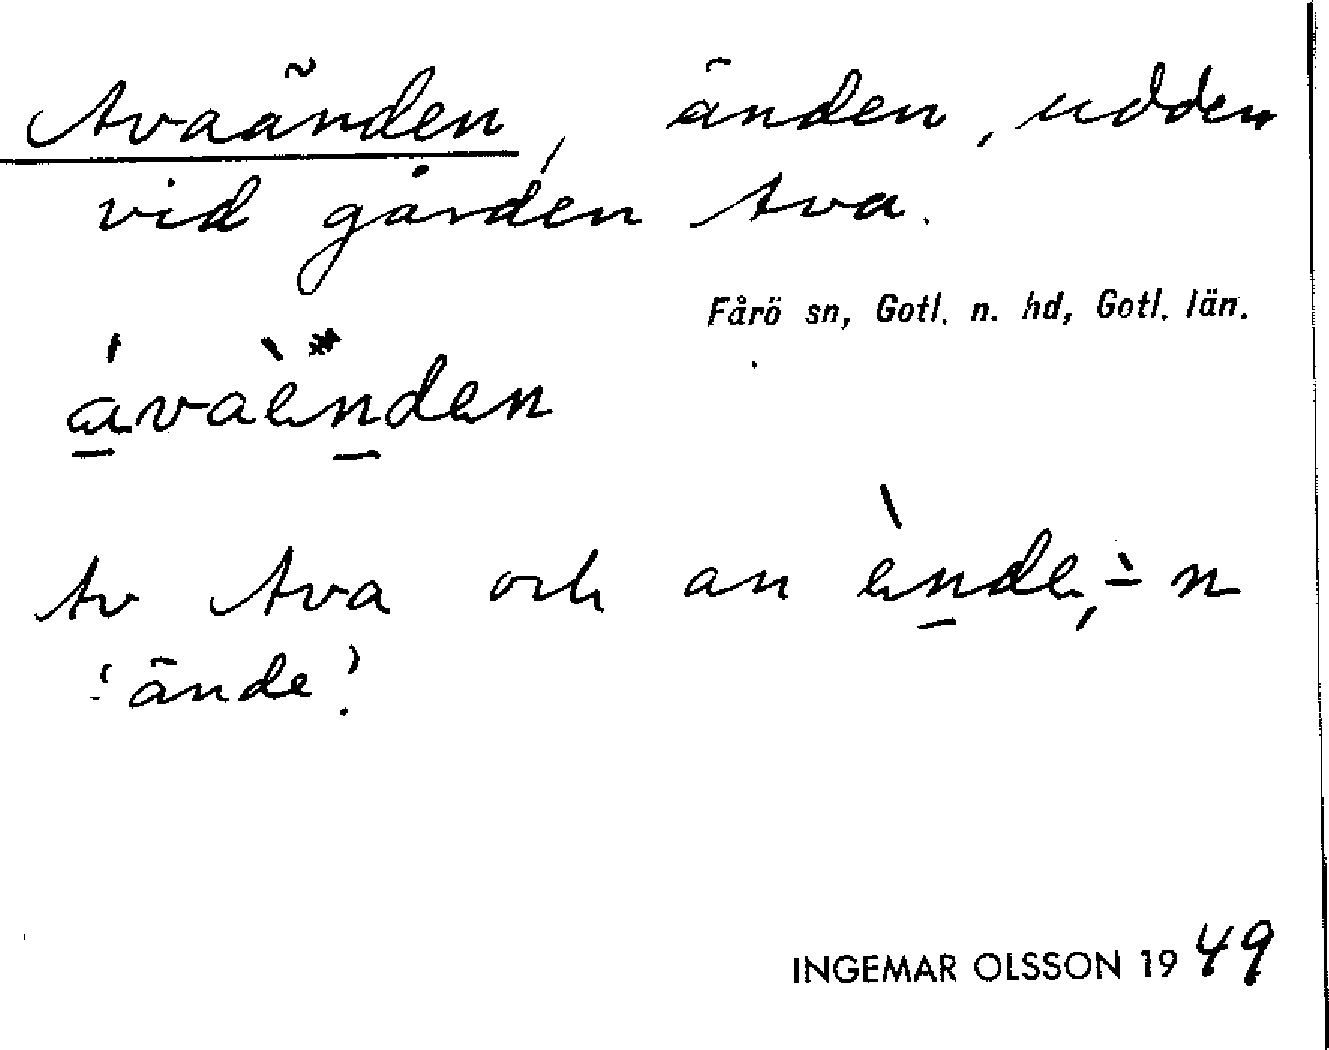 Avaänden, änden, udden
vid gården Ava.
Fårö sn, Gotl. n. hd, Gotl. län.
ávaènden
Av Ava och an ènde, -̀n
'ände'.
INGEMAR OLSSON 1949